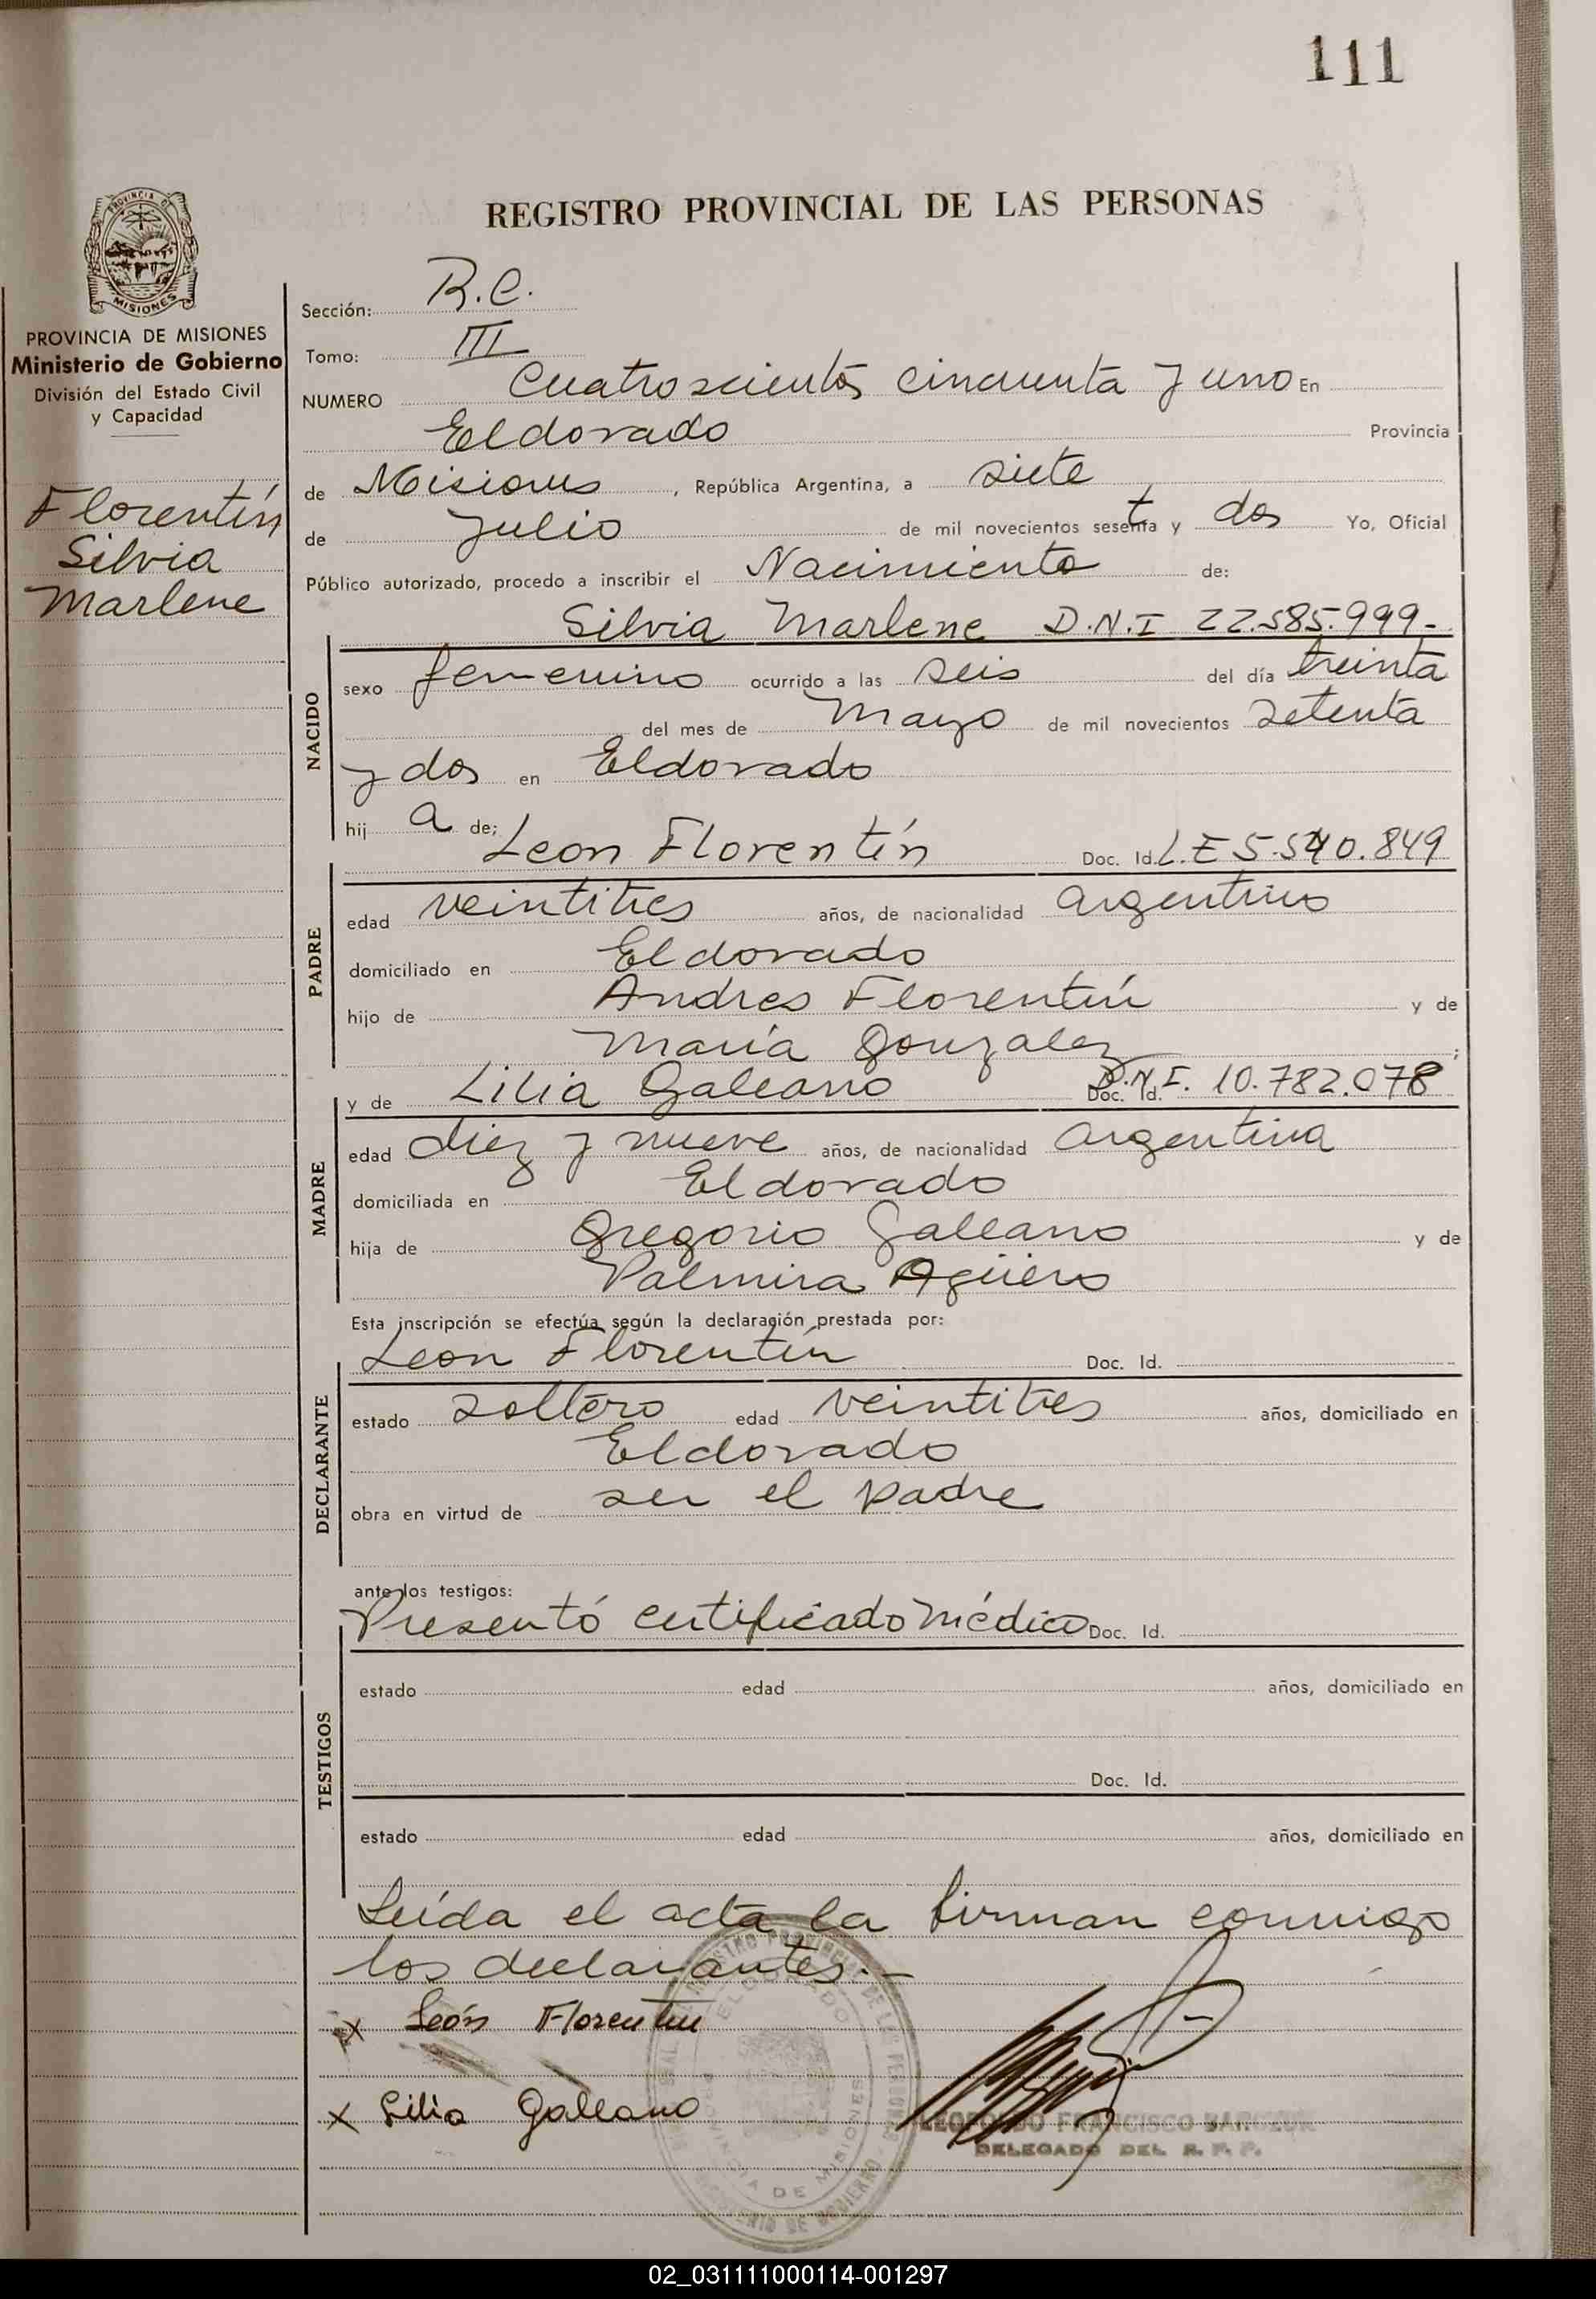 111
REGISTRO PROVINCIAL DE LAS PERSONAS
PROVINCIA DE MISIONES
Ministerio de Gobierno
División del Estado Civil
y Capacidad
Florentín
Silvia
Marlene
Sección: R.C.
Tomo: III
NUMERO Cuatroscientos cincuenta y uno En
Eldorado Provincia
de Misiones, República Argentina, a siete
de Julio de mil novecientos setenta y dos Yo, Oficial
Público autorizado, procedo a inscribir el Nacimiento de:
Silvia Marlene D.N.I 22.585.999.-
NACIDO
sexo femenino ocurrido a las seis del día treinta
del mes de Mayo de mil novecientos setenta
y dos en Eldorado
hij a de;
Leon Florentín Doc. Id. L.E 5.540.849
PADRE
edad veintitres años, de nacionalidad argentino
domiciliado en Eldorado
hijo de Andres Florentín y de
María Gonzalez;
y de Lilia Galeano Doc. Id. D.N.I. 10.782.078
MADRE
edad diez y nueve años, de nacionalidad argentina
domiciliada en Eldorado
hija de Gregorio Galeano y de
Palmira Agüero
Esta inscripción se efectúa según la declaración prestada por:
Leon Florentín Doc. Id.
DECLARANTE
estado soltero edad veintitres años, domiciliado en
Eldorado
obra en virtud de ser el padre
ante los testigos:
Presentó certificado médico Doc. Id.
TESTIGOS
estado edad años, domiciliado en
Doc. Id.
estado edad años, domiciliado en
Leída el acta la firman conmigo
los declarantes.-
x León Florentin
x Lilia Galeano
LEOPOLDO FRANCISCO
DELEGADO DEL R. P. P.
02_031111000114-001297